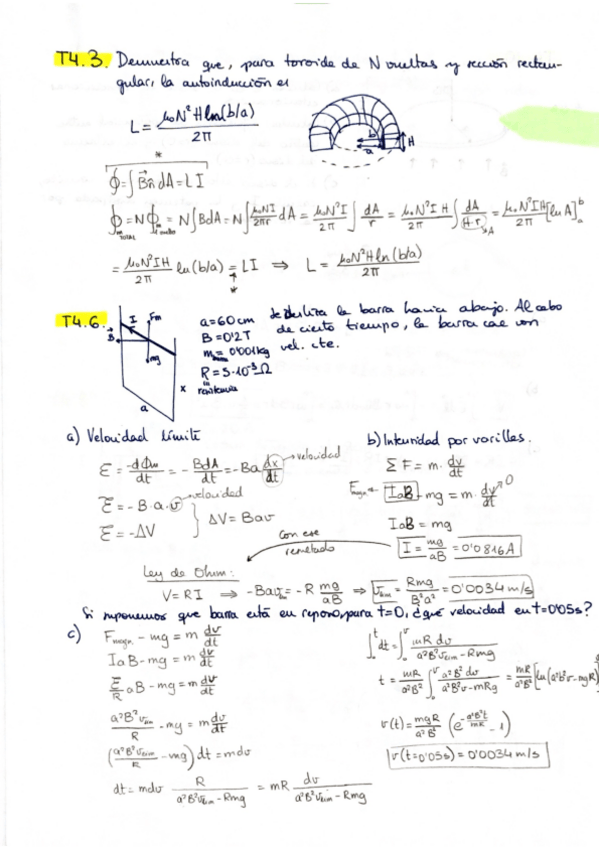 T4.3. Demuestra que, para toroide de N vueltas y sección rectan-
gular, la autoinducción es
L = μ₀N²H ln(b/a) / 2π
b
a
H
*
ϕ = ∫B⃗n̂dA = LI
ϕm TOTAL = Nϕm = N∫BdA = N∫ μ₀NI/2πr dA = μ₀N²I/2π ∫ dA/r = μ₀N²IH/2π ∫ dA/H·r = μ₀N²IH/2π [ln A]ₐᵇ
= μ₀N²IH/2π ln(b/a) = LI ⇒ L = μ₀N²H ln(b/a)/2π
*
T4.6.
I
Fm
B
mg
a
x
a = 60 cm
B = 0'2T
m = 0'001kg
R = 5·10⁻³Ω
resistencia
se desliza la barra hacia abajo. Al cabo
de cierto tiempo, la barra cae con
vel. cte.
a) Velocidad límite
ε = -dϕm/dt = -BdA/dt = -Ba dx/dt → velocidad
ε = -B·a·v → velocidad
ε = -ΔV
ΔV = Bav
b) Intensidad por varillas.
ΣF = m·dv/dt
Fmagn ← IaB - mg = m·dv/dt → 0
IaB = mg
I = mg/aB = 0'0816A
Con ese
resultado
Ley de Ohm:
V = RI ⇒ -Bav_lim = -R mg/aB ⇒ v_lim = Rmg/B²a² = 0'0034 m/s
Si suponemos que barra está en reposo, para t=0, ¿qué velocidad en t=0'05s?
c) Fmagn. - mg = m dv/dt
IaB - mg = m dv/dt
ε/R aB - mg = m dv/dt
a²B²v_lim/R - mg = m dv/dt
(a²B²v_lim/R - mg) dt = mdv
dt = mdv R/(a²B²v_lim - Rmg) = mR dv/(a²B²v_lim - Rmg)
∫₀ᵗ dt = ∫₀ᵛ mR dv/(a²B²v_lim - Rmg)
t = mR/a²B² ∫₀ᵛ a²B² dv/(a²B²v - mRg) = mR/a²B² [ln(a²b²v - mgR)]
v(t) = mgR/a²B² (e^(-a²B²t/mR) - 1)
v(t=0'05s) = 0'0034 m/s